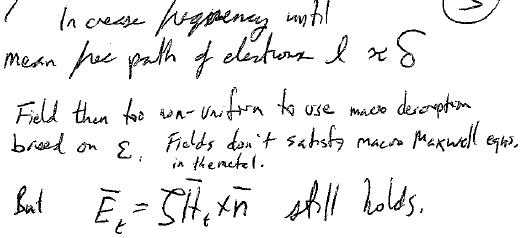 Increase frequency until
mean free path of electrons l ≈ δ
Field then too non-uniform to use macro description
based on ε. Fields don't satisfy macro Maxwell eqns.
in the metal.
But E̅ₜ = ζH̅ₜ×n̅ still holds.